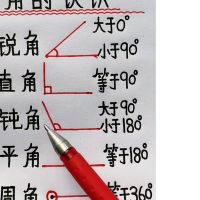 角的认识
大于0°
锐角
小于90°
直角 等于90°
大于90°
钝角
小于180°
平角 等于180°
周角 等于360°